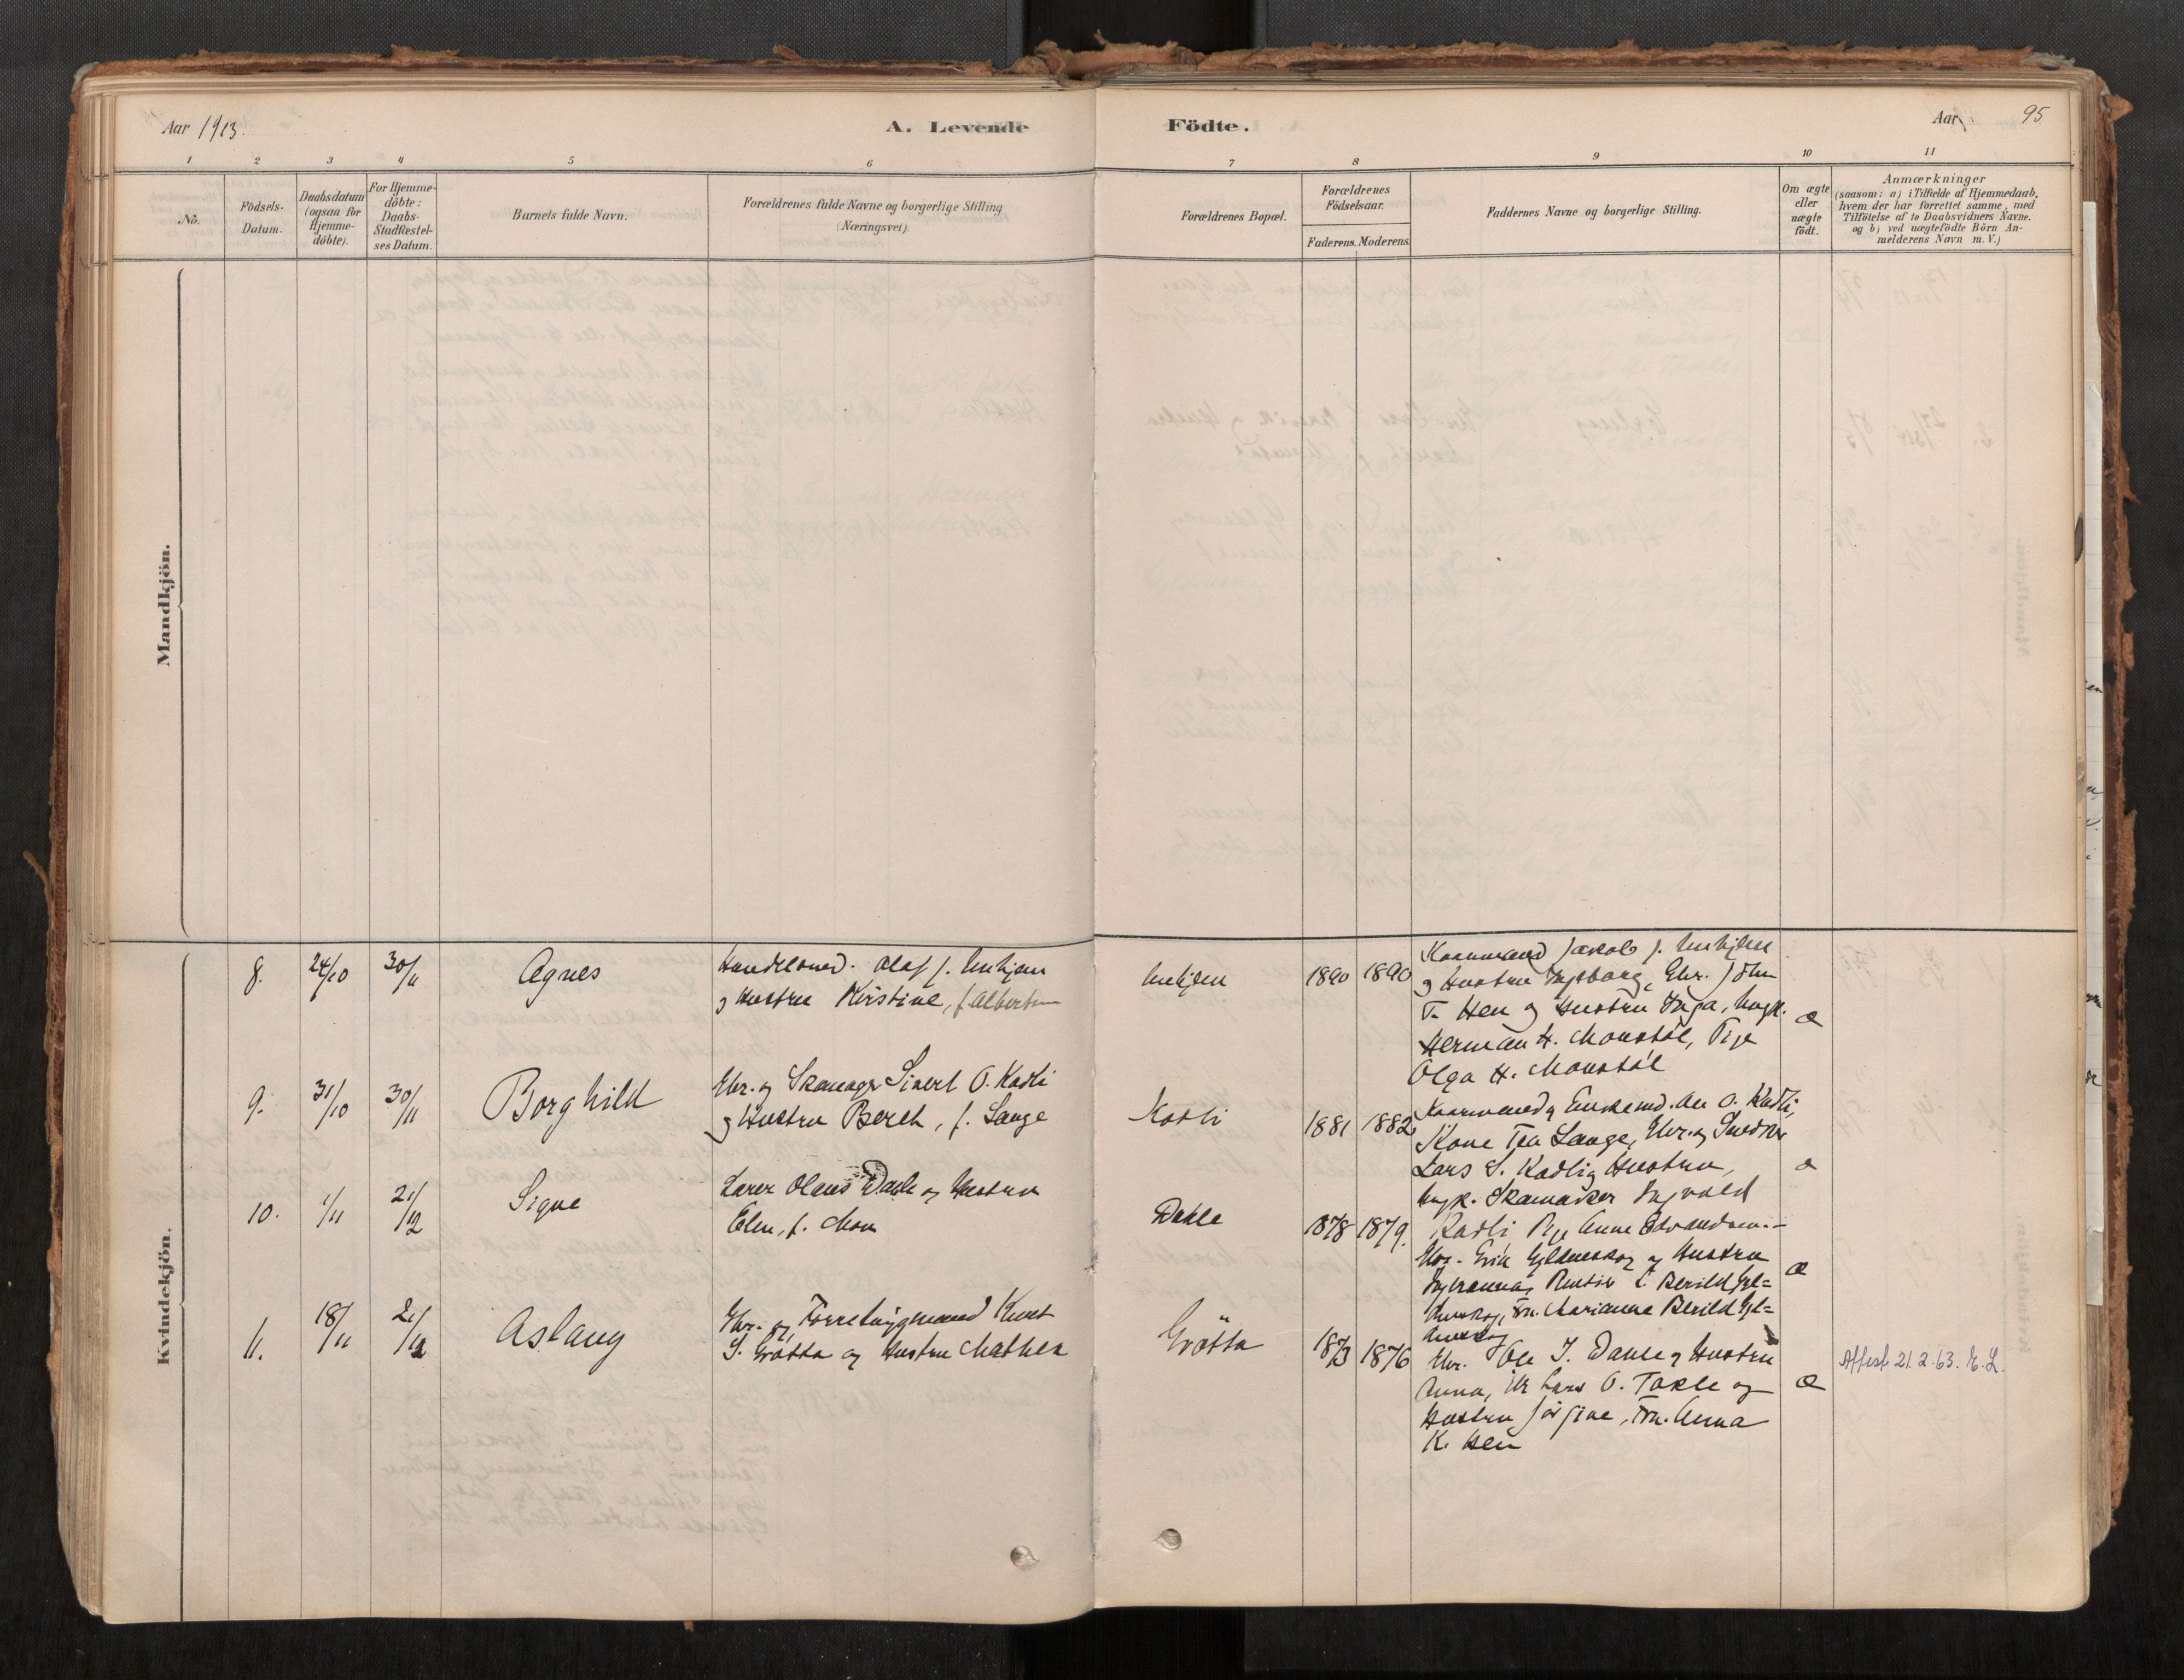 Aar 1913.
A. Levende
Födte.
Aar
95
1 2 3 4 5 6 7 8 9 10 11
No.
Födsels-
Datum.
Daabsdatum
(ogsaa for
Hjemme-
döbte).
For Hjemme-
döbte:
Daabs-
Stadfæstel-
ses Datum.
Barnets fulde Navn.
Forældrenes fulde Navne og borgerlige Stilling
(Næringsvei).
Forældrenes Bopæl.
Forældrenes
Födselsaar.
Faderens. Moderens.
Faddernes Navne og borgerlige Stilling.
Om ægte
eller
uægte
födt.
Anmærkninger
(saasom: a) i Tilfælde af Hjemmedaab,
hvem der har forrettet samme, med
Tilföielse af to Daabsvidners Navne.
og b) ved uægtefödte Börn An-
melderens Navn m. V.)
Mandkjön.
Kvindekjön.
8. 24/10 30/11 Agnes
Olaf J.
og Hustru Kirstine, f. Albertsen
1890 1890
Kaarmand Jakob J.
og Hustru Ingeborg, Gbr. John
T. Hen og Hustru Inga, Ungk.
Herman H. Monstøl, Pige
Olga H. Monstøl
æ
9. 31/10 30/11 Borghild
Gbr. og Skomager Sivert O. Kadli
og Hustru Bereth, f. Lange
Kadli
1881 1882
Kaarmand og Enkemd. O. Kadli,
Kone Tea Lange, Gbr. og Snedker
Lars S. Kadli og Hustru,
Ungk. Skomaker Ingvald
Kadli, Pige Anne
æ
10. 1/11 21/12 Signe
Lærer Olaus Dahle og Hustru
Elen, f. Moen
Dahle
1878 1879.
Gbr. Erik Gjeldneskog og Hustru
L. Berild
Marianne Berild
æ
11. 18/11 21/12 Aslaug
Gbr. og Forretningsmand Knut
S. Grøtta og Hustru Mathea
Grøtta
1873 1876
Gbr. Ole I. Dahle og Hustru
Anna, Lars O. Takle og
Hustru Jørgine, Frk. Anna
K. Hen
æ
Attest 21.2.63. E.L.